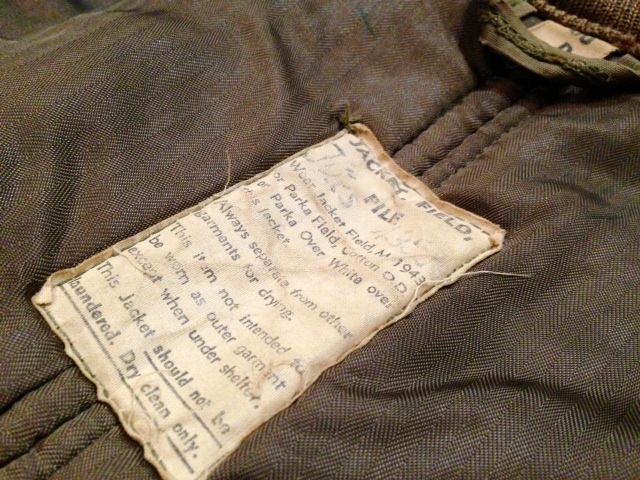 JACKET, FIELD,
PILE
Wear Jacket Field, M-1943
or Parka Field, Cotton O.D.
or Parka Over White over
this jacket.
Always separate from other
garments for drying.
This item not intended to
be worn as outer garment
except when under shelter.
This Jacket should not be
laundered. Dry clean only.